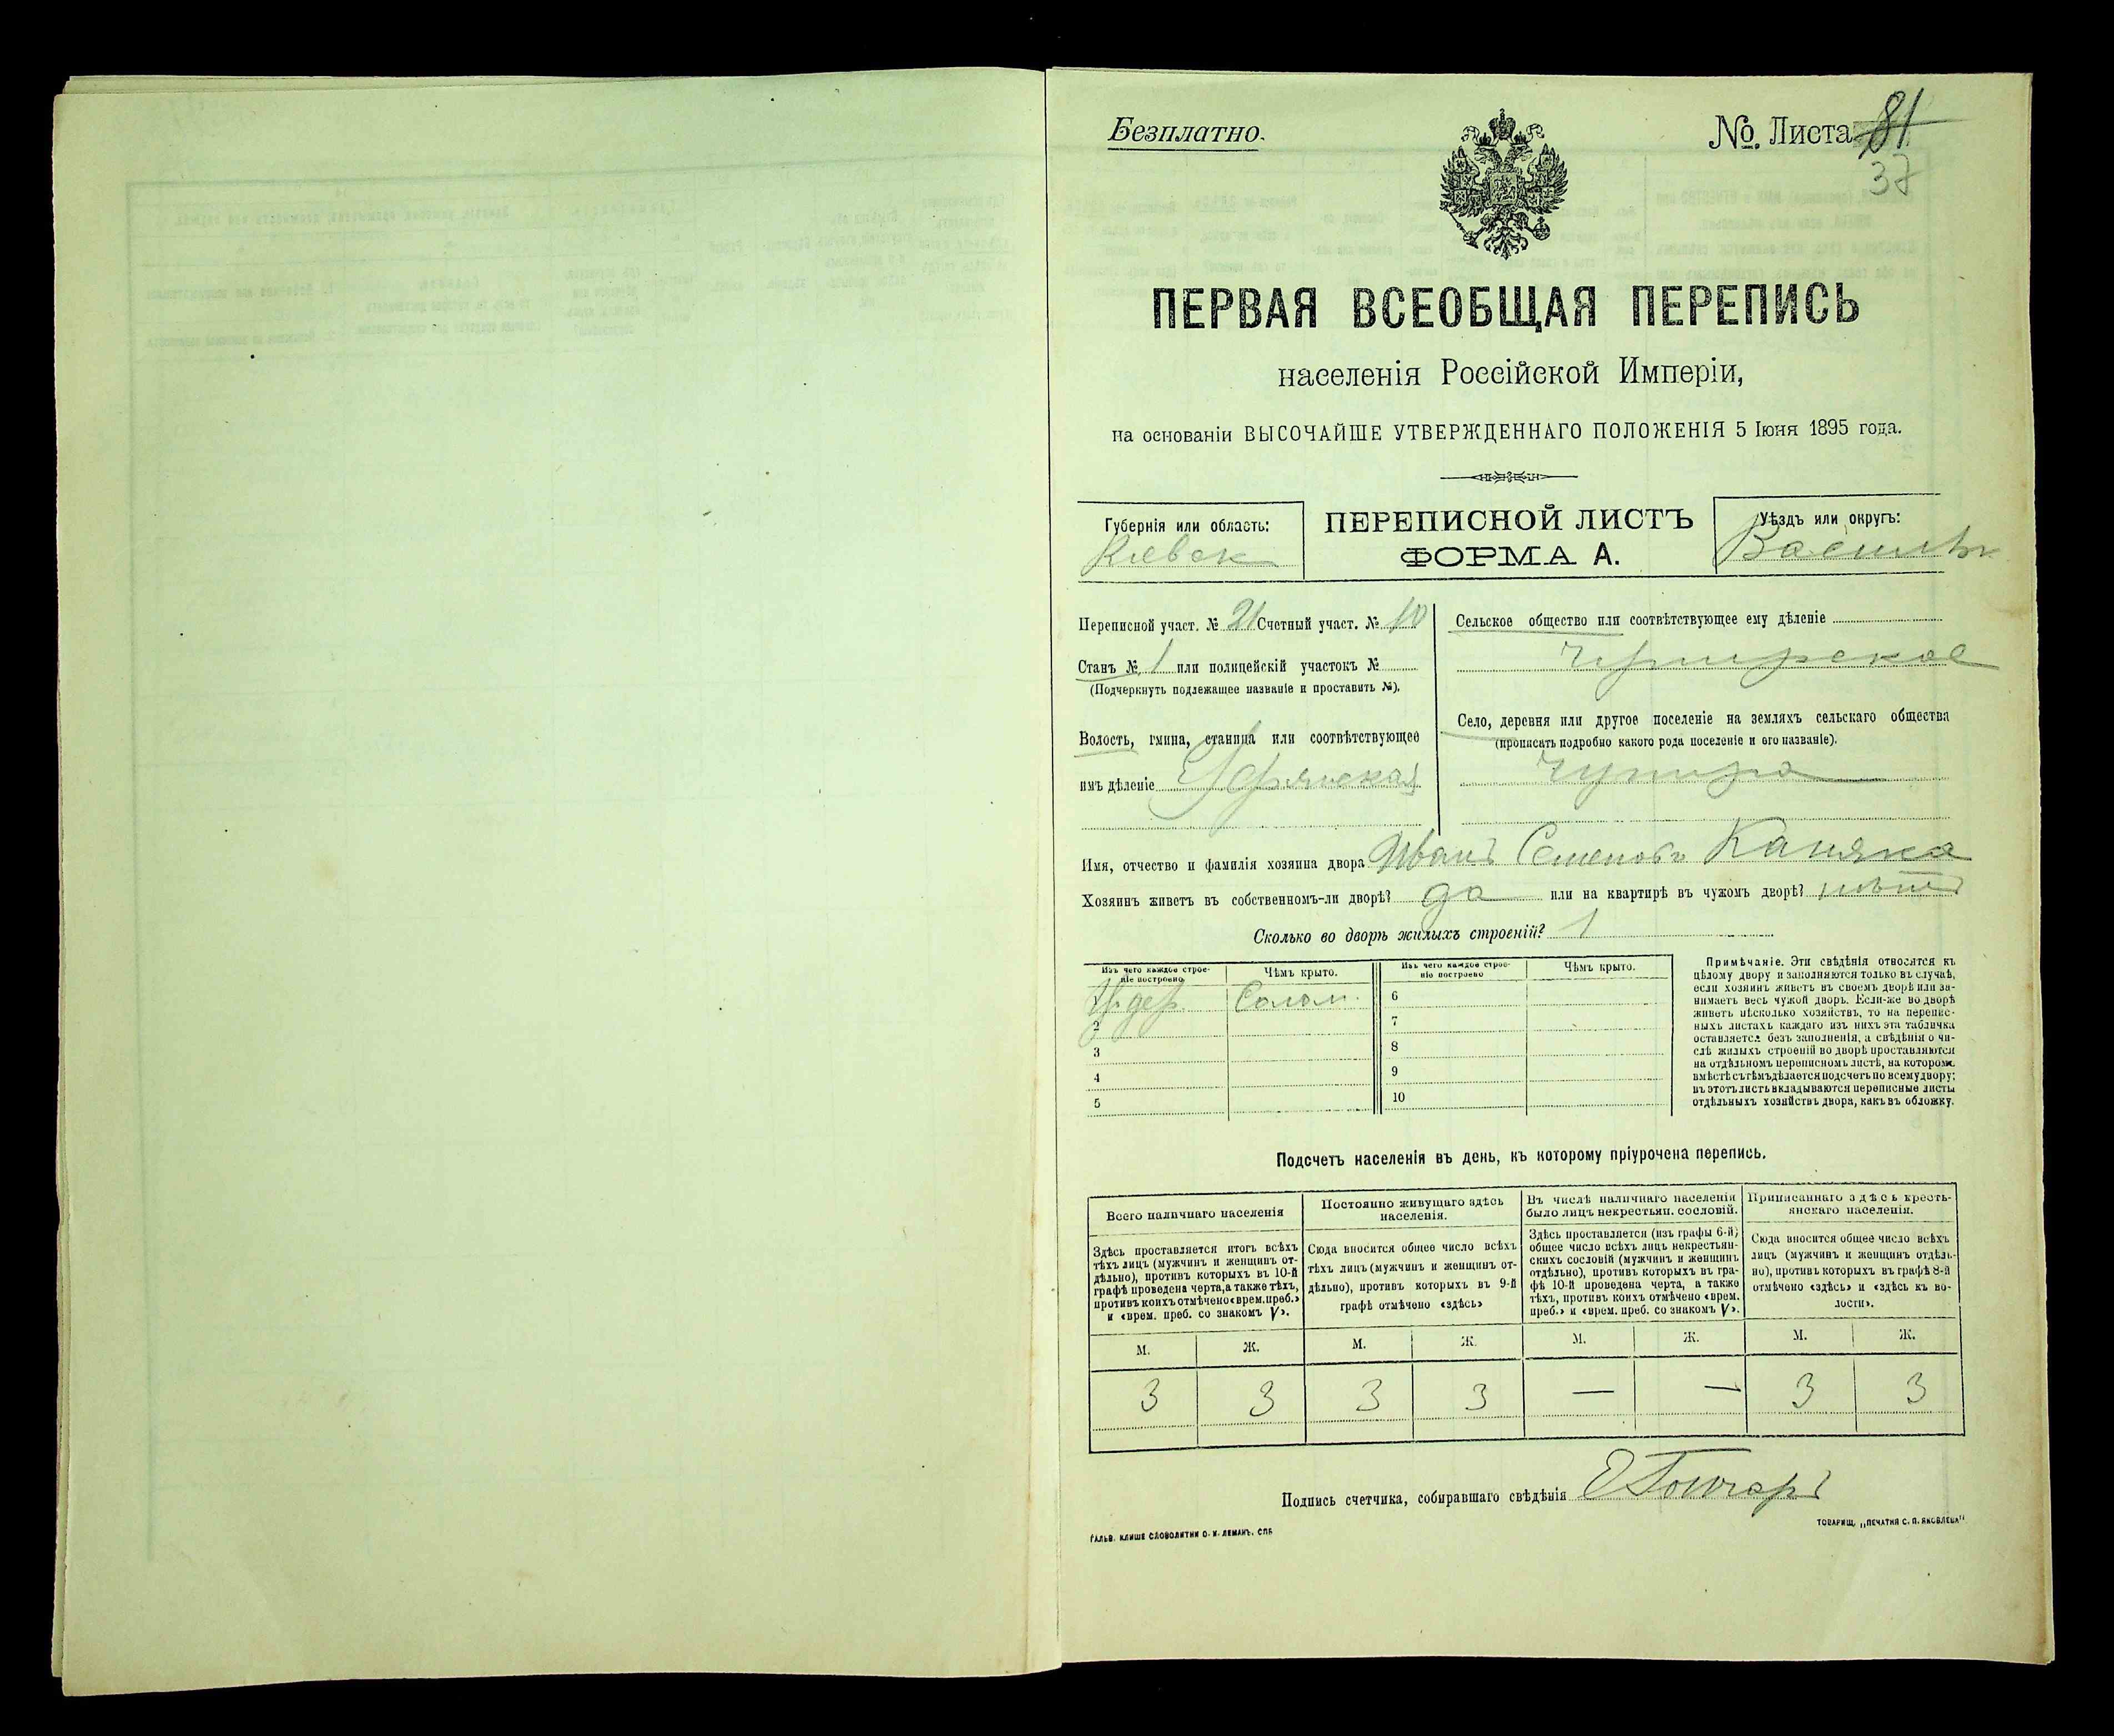 Безплатно.
№. Листа 81
37
ПЕРВАЯ ВСЕОБЩАЯ ПЕРЕПИСЬ
населенія Россійской Имперіи,
на основаніи ВЫСОЧАЙШЕ УТВЕРЖДЕННАГО ПОЛОЖЕНІЯ 5 Іюня 1895 года.
Губернія или область:
Киевск
ПЕРЕПИСНОЙ ЛИСТЪ
ФОРМА А.
Уѣздъ или округъ:
Васильк
Переписной участ. № 21 Счетный участ. № 10
Станъ № 1 или полицейскій участокъ №
(Подчеркнуть подлежащее названіе и проставить №).
Волость, гмина, станица или соотвѣтствующее
имъ дѣленіе
Сельское общество или соотвѣтствующее ему дѣленіе
Чупирское
Село, деревня или другое поселеніе на земляхъ сельскаго общества
(прописать подробно какого рода поселеніе и его названіе).
Чупира
Имя, отчество и фамилія хозяина двора Иванъ Семеновъ Каняка
Хозяинъ живетъ въ собственномъ-ли дворѣ? да или на квартирѣ въ чужомъ дворѣ? нѣтъ
Сколько во дворѣ жилыхъ строеній? 1
Изъ чего каждое строе-
ніе построено
Чѣмъ крыто.
Изъ чего каждое строе-
ніе построено
Чѣмъ крыто.
дер. Солом.
2
3
4
5
6
7
8
9
10
Примѣчаніе. Эти свѣдѣнія относятся къ
цѣлому двору и заполняются только въ случаѣ,
если хозяинъ живетъ въ своемъ дворѣ или за-
нимаетъ весь чужой дворъ. Если-же во дворѣ
живетъ нѣсколько хозяйствъ, то на перепис-
ныхъ листахъ каждаго изъ нихъ эта табличка
оставляется безъ заполненія, а свѣдѣнія о чи-
слѣ жилыхъ строеній во дворѣ проставляются
на отдѣльномъ переписномъ листѣ, на которомъ
вмѣстѣ съ тѣмъ дѣлается подсчетъ по всему двору;
въ этотъ листъ вкладываются переписные листы
отдѣльныхъ хозяйствъ двора, какъ въ обложку.
Подсчетъ населенія въ день, къ которому пріурочена перепись.
Всего наличнаго населенія
Здѣсь проставляется итогъ всѣхъ
тѣхъ лицъ (мужчинъ и женщинъ от-
дѣльно), противъ которыхъ въ 10-й
графѣ проведена черта, а также тѣхъ,
противъ коихъ отмѣчено «врем. преб.»
и «врем. преб. со знакомъ V».
Постоянно живущаго здѣсь
населенія.
Сюда вносится общее число всѣхъ
тѣхъ лицъ (мужчинъ и женщинъ от-
дѣльно), противъ которыхъ въ 9-й
графѣ отмѣчено «здѣсь»
Въ числѣ наличнаго населенія
было лицъ некрестьян. сословій.
Здѣсь проставляется (изъ графы 6-й)
общее число всѣхъ лицъ некрестьян-
скихъ сословій (мужчинъ и женщинъ
отдѣльно), противъ которыхъ въ гра-
фѣ 10-й проведена черта, а также
тѣхъ, противъ коихъ отмѣчено «врем.
преб.» и «врем. преб. со знакомъ V».
Приписаннаго здѣсь кресть-
янскаго населенія.
Сюда вносится общее число всѣхъ
лицъ (мужчинъ и женщинъ отдѣль-
но), противъ которыхъ въ графѣ 8-й
отмѣчено «здѣсь» и «здѣсь къ во-
лости».
М. Ж. М. Ж. М. Ж. М. Ж.
3 3 3 3 — — 3 3
Подпись счетчика, собиравшаго свѣдѣнія
ГАЛЬВ. КЛИШЕ СЛОВОЛИТНИ О. И. ЛЕМАНЪ, СПБ
ТОВАРИЩ. „ПЕЧАТНЯ С. П. ЯКОВЛЕВА"